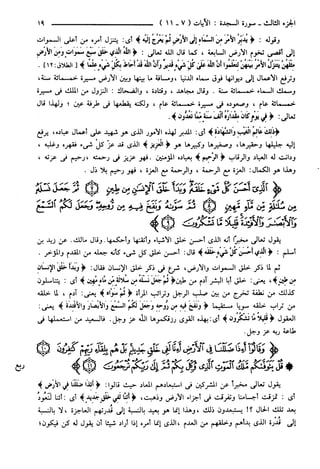 الجزء الثالث - سورة السجدة : الآيات ( ٧ - ١١ ) ١٩
وقوله : ﴿ يُدَبِّرُ الأَمْرَ مِنَ السَّمَاءِ إِلَى الأَرْضِ ثُمَّ يَعْرُجُ إِلَيْهِ ﴾ أى: يتنزل أمره من أعلى السموات
إلى أقصى تخوم الأرض السابعة ، كما قال الله تعالى : ﴿ اللَّهُ الَّذِي خَلَقَ سَبْعَ سَمَوَاتٍ وَمِنَ الأَرْضِ
مِثْلَهُنَّ يَتَنَزَّلُ الأَمْرُ بَيْنَهُنَّ لِتَعْلَمُوا أَنَّ اللَّهَ عَلَىٰ كُلِّ شَيْءٍ قَدِيرٌ وَأَنَّ اللَّهَ قَدْ أَحَاطَ بِكُلِّ شَيْءٍ عِلْمًا ﴾ [ الطلاق : ١٢ ] .
وترفع الأعمال إلى ديوانها فوق سماء الدنيا ، ومسافة ما بينها وبين الأرض مسيرة خمسمائة سنة ،
وسمك السماء خمسمائة سنة . وقال مجاهد ، وقتادة ، والضحاك : النزول من الملك فى مسيرة
خمسمائة عام ، وصعوده فى مسيرة خمسمائة عام ، ولكنه يقطعها فى طرفة عين ؛ ولهذا قال
تعالى : ﴿ فِي يَوْمٍ كَانَ مِقْدَارُهُ أَلْفَ سَنَةٍ مِّمَّا تَعُدُّونَ ﴾ .
﴿ ذَلِكَ عَالِمُ الْغَيْبِ وَالشَّهَادَةِ ﴾ أى : المدبر لهذه الأمور الذى هو شهيد على أعمال عباده، يرفع
إليه جليلها وحقيرها، وصغيرها وكبيرها هو ﴿ الْعَزِيزُ ﴾ الذى قد عز كل شىء، فقهره وغلبه ،
ودانت له العباد والرقاب ﴿ الرَّحِيمُ ﴾ بعباده المؤمنين . فهو عزيز فى رحمته ، رحيم فى عزته ،
وهذا هو الكمال: العزة مع الرحمة ، والرحمة مع العزة ، فهو رحيم بلا ذل .
﴿ الَّذِي أَحْسَنَ كُلَّ شَيْءٍ خَلَقَهُ وَبَدَأَ خَلْقَ الْإِنسَانِ مِن طِينٍ ٧ ثُمَّ جَعَلَ نَسْلَهُ
مِن سُلَالَةٍ مِّن مَّاءٍ مَّهِينٍ ٨ ثُمَّ سَوَّاهُ وَنَفَخَ فِيهِ مِن رُّوحِهِ وَجَعَلَ لَكُمُ السَّمْعَ
وَالْأَبْصَارَ وَالْأَفْئِدَةَ قَلِيلًا مَّا تَشْكُرُونَ ٩ ﴾
يقول تعالى مخبراً أنه الذى أحسن خلق الأشياء وأتقنها وأحكمها. وقال مالك، عن زيد بن
أسلم : ﴿ الَّذِي أَحْسَنَ كُلَّ شَيْءٍ خَلَقَهُ ﴾ قال: أحسن خلق كل شىء كأنه جعله من المقدم والمؤخر .
ثم لما ذكر خلق السموات والأرض، شرع فى ذكر خلق الإنسان فقال: ﴿ وَبَدَأَ خَلْقَ الإِنسَانِ
مِن طِينٍ ﴾ يعنى: خلق أبا البشر آدم من طين ﴿ ثُمَّ جَعَلَ نَسْلَهُ مِن سُلالَةٍ مِّن مَّاءٍ مَّهِينٍ ﴾ أى : يتناسلون
كذلك من نطفة تخرج من بين صلب الرجل وترائب المرأة ﴿ ثُمَّ سَوَّاهُ ﴾ يعنى: آدم ، لما خلقه
من تراب خلقه سويا مستقيما ﴿ وَنَفَخَ فِيهِ مِن رُّوحِهِ وَجَعَلَ لَكُمُ السَّمْعَ وَالأَبْصَارَ وَالأَفْئِدَةَ ﴾ يعنى:
العقول ﴿ قَلِيلاً مَّا تَشْكُرُونَ ﴾ أى:بهذه القوى رزقكموها الله عز وجل. فالسعيد من استعملها فى
طاعة ربه عز وجل.
﴿ وَقَالُوا أَإِذَا ضَلَلْنَا فِي الْأَرْضِ أَإِنَّا لَفِي خَلْقٍ جَدِيدٍ بَلْ هُم بِلِقَاءِ رَبِّهِمْ كَافِرُونَ ١٠
﴿ قُلْ يَتَوَفَّاكُم مَّلَكُ الْمَوْتِ الَّذِي وُكِّلَ بِكُمْ ثُمَّ إِلَىٰ رَبِّكُمْ تُرْجَعُونَ ١١ ﴾
ربع
يقول تعالى مخبراً عن المشركين فى استبعادهم المعاد حيث قالوا: ﴿ أَئِذَا ضَلَلْنَا فِي الأَرْضِ ﴾
أى : تمزقت أجسامنا وتفرقت فى أجزاء الأرض وذهبت، ﴿ أَئِنَّا لَفِي خَلْقٍ جَدِيدٍ ﴾ أى : أئنا لنعود
بعد تلك الحال ؟! يستبعدون ذلك ، وهذا إنما هو بعيد بالنسبة إلى قُدرَتهم العاجزة ، لا بالنسبة
إلى قُدرة الذى بدأهم وخلقهم من العدم ، الذى إنما أمره إذا أراد شيئا أن يقول له كن فيكون؛